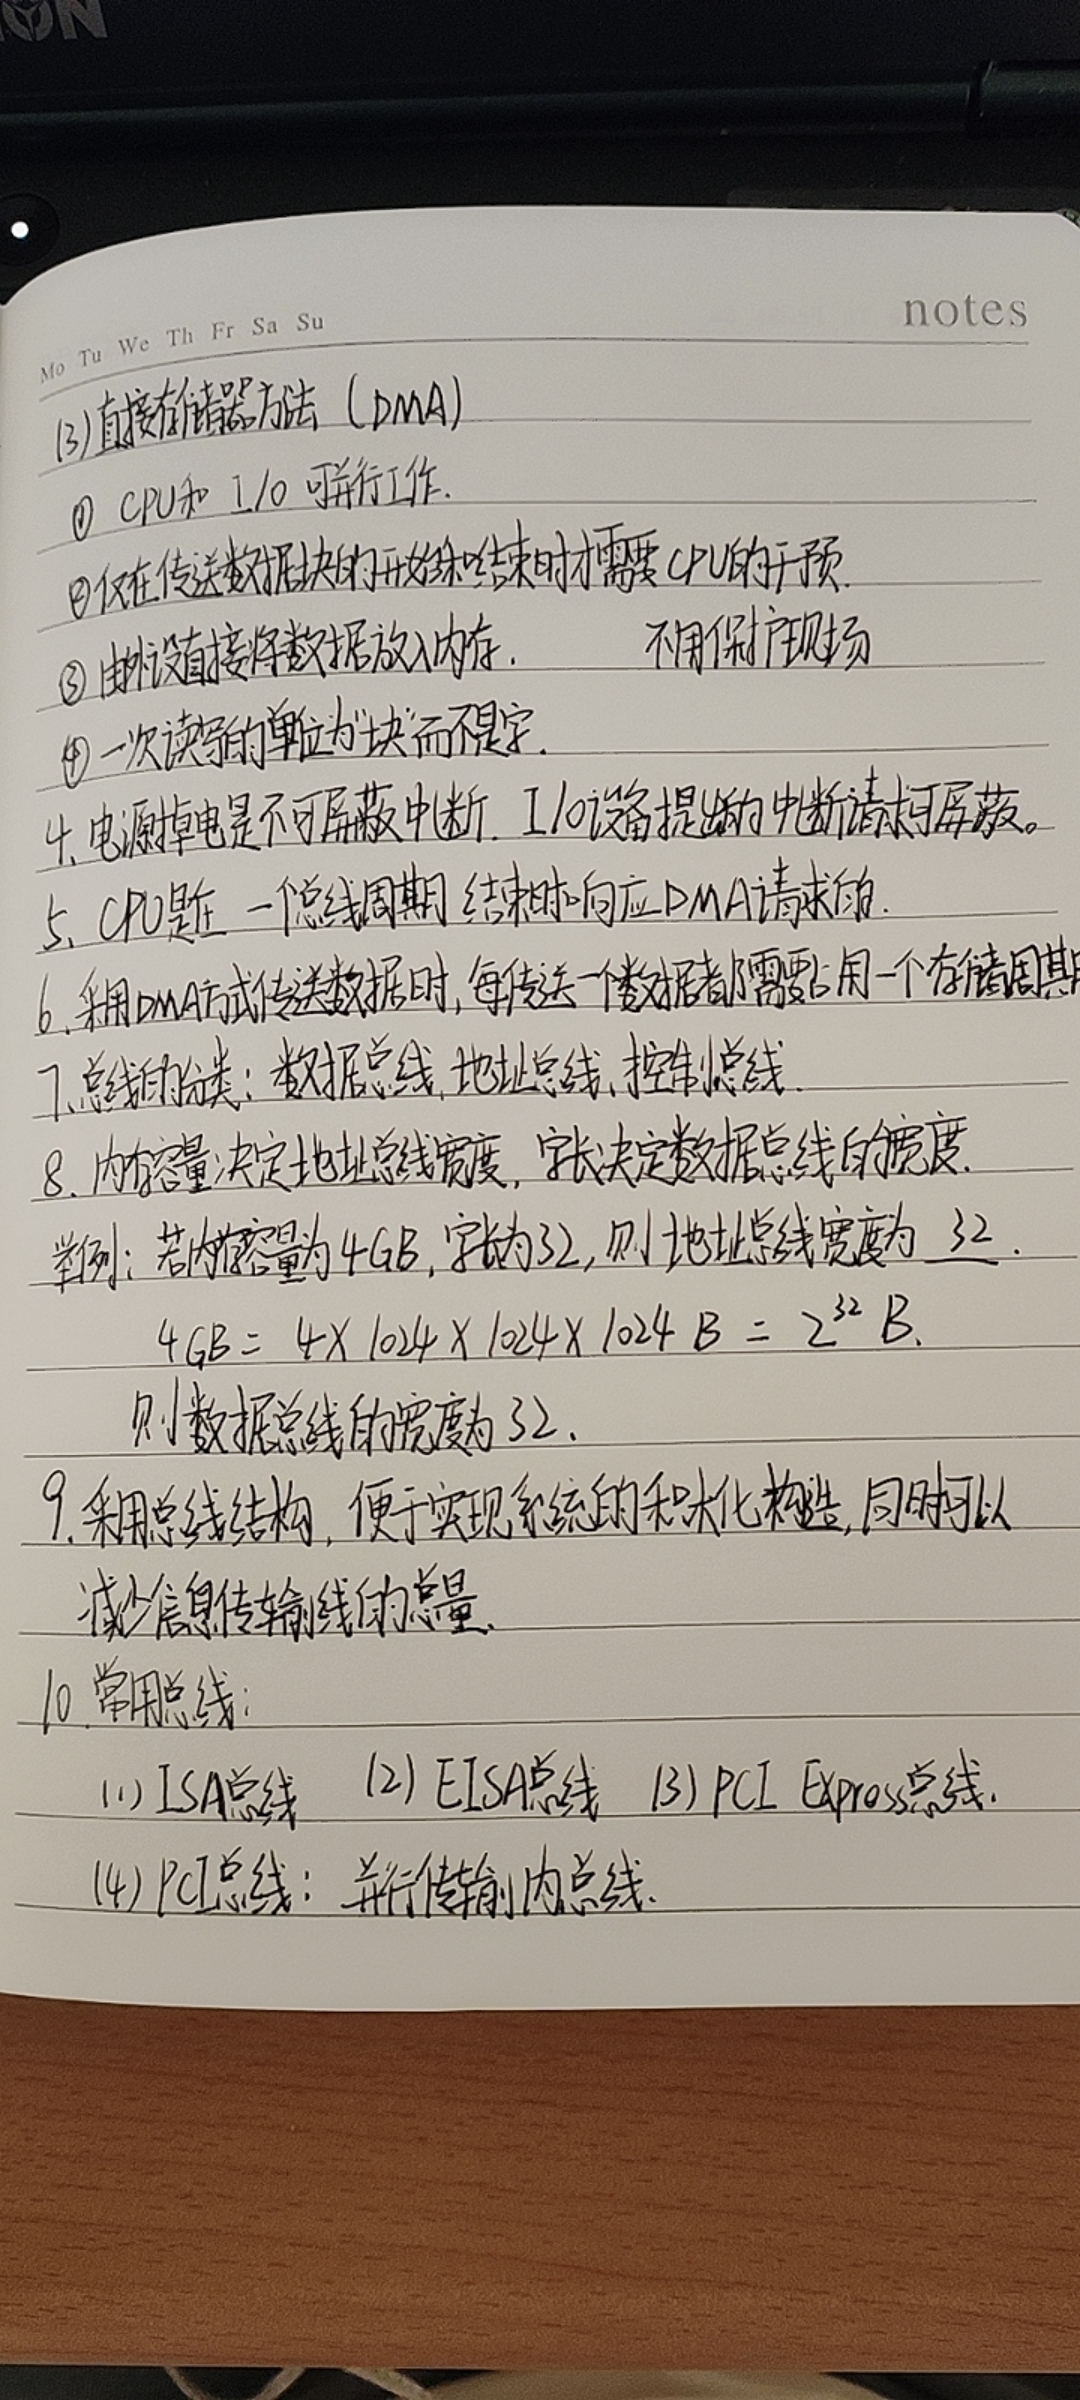 ION
Mo Tu We Th Fr Sa Su
notes
(3)直接存储器方法（DMA）
① CPU和 I/O 可并行工作.
②仅在传送数据块的开始和结束时才需要CPU的干预.
③由外设直接将数据放入内存. 不用保护现场
④一次读写的单位为"块"而不是字.
4、电源掉电是不可屏蔽中断. I/O设备提出的中断请求可屏蔽。
5、CPU是在一个总线周期结束时响应DMA请求的.
6.采用DMA方式传送数据时,每传送一个数据都需要占用一个存储周期
7、总线的分类：数据总线、地址总线、控制总线.
8、内存容量决定地址总线宽度，字长决定数据总线的宽度.
举例：若内存容量为4GB,字长为32,则地址总线宽度为 32 .
4GB = 4 X 1024 X 1024 X 1024 B = 2³² B.
则数据总线的宽度为32.
9.采用总线结构，便于实现系统的积木化构造,同时可以
减少信息传输线的总量.
10.常用总线：
(1) ISA总线 (2) EISA总线 (3) PCI Express总线.
(4) PCI总线：并行传输内总线.